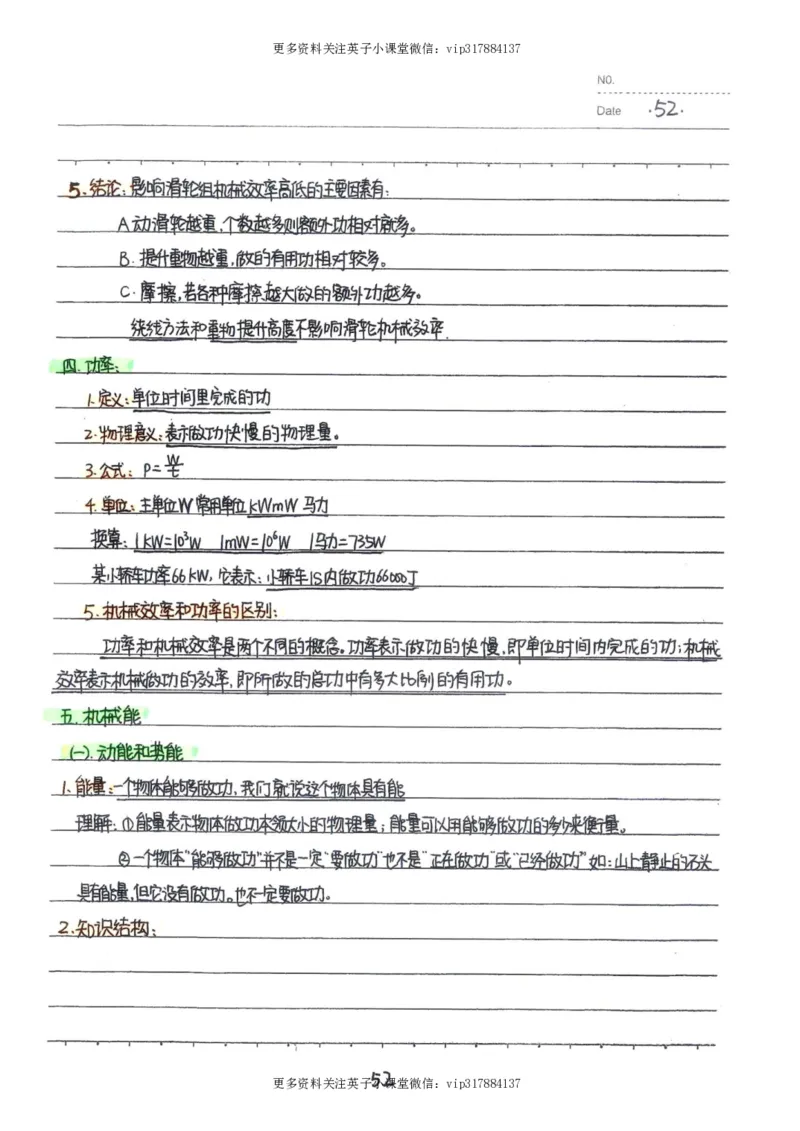 更多资料关注英子小课堂微信：vip317884137
NO.
Date ·52·
5.结论：影响滑轮组机械效率高低的主要因素有：
A动滑轮越重,个数越多则额外功相对就多。
B.提升重物越重,做的有用功相对较多。
C.摩擦,若各种摩擦越大做的额外功越多。
绕线方法和重物提升高度不影响滑轮机械效率.
四.功率：
1.定义：单位时间里完成的功
2.物理意义：表示做功快慢的物理量。
3.公式：P=W/t
4.单位：主单位W 常用单位kWmW 马力
换算：1kW=10³W 1mW=10⁶W 1马力=735W
某小轿车功率66kW,它表示：小轿车1S内做功66000J
5.机械效率和功率的区别：
功率和机械效率是两个不同的概念。功率表示做功的快慢,即单位时间内完成的功;机械
效率表示机械做功的效率,即所做的总功中有多大比例的有用功。
五.机械能
(一).动能和势能
1.能量：一个物体能够做功,我们就说这个物体具有能
理解：①能量表示物体做功本领大小的物理量；能量可以用能够做功的多少来衡量。
②一个物体"能够做功"并不是一定"要做功"也不是"正在做功"或"已经做功"如：山上静止的石头
具有能量,但它没有做功。也不一定要做功。
2.知识结构：
52
更多资料关注英子小课堂微信：vip317884137